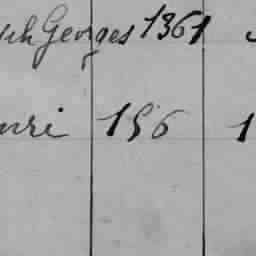 Georges 1361
nri 156 1